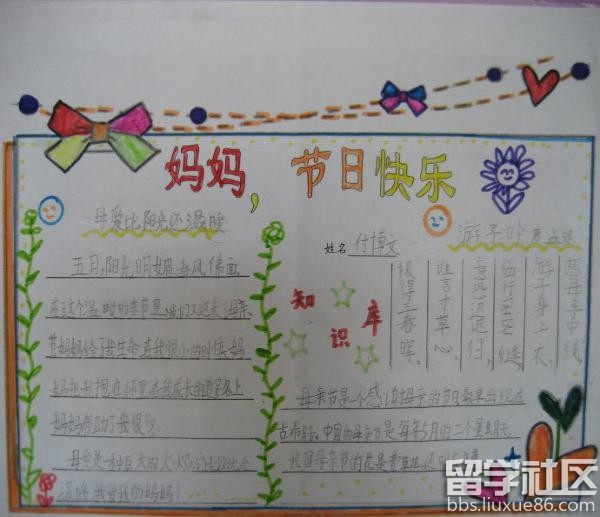 妈妈,节日快乐
母爱比阳光还温暖
五月,阳光明媚,春风佛面,
在这个温暖的季节里,我们又迎来了母亲
节妈妈给了我生命,在我很小的时候,妈
妈把我抱在怀里,在我成长的道路上
妈妈帮助了我很多
母爱是一种巨大的火焰,它比阳光还
温暖,我爱我的妈妈!
姓名 付博文
游子吟 唐 孟郊
慈母手中线,
游子身上衣,
临行密密缝,
意恐迟迟归,
谁言寸草心,
报得三春晖。
知识库
母亲节是一个感谢母亲的节日最早出现在
古希腊;中国的母亲节是每年5月的二个星期天
我国母亲节的花是萱草花
留学社区
bbs.liuxue86.com